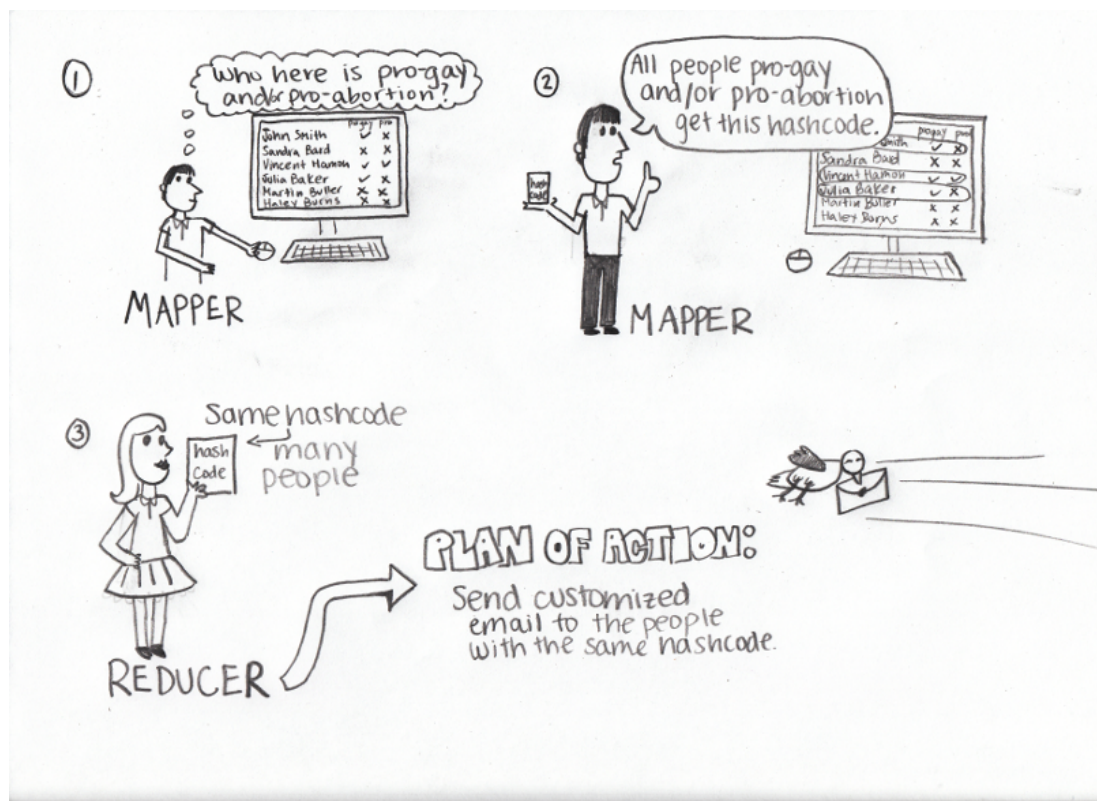 1
Who here is pro-gay
and/or pro-abortion?
pro-gay pro
John Smith ✓ x
Sandra Bard x x
Vincent Hamon ✓ ✓
Julia Baker ✓ x
Martin Buller x x
Haley Burns x x
MAPPER
2
All people pro-gay
and/or pro-abortion
get this hashcode.
hash
code
progay pro
mith ✓ x
Sandra Bard x x
Vincent Hamon ✓ ✓
Julia Baker ✓ x
Martin Buller x x
Haley Burns x x
MAPPER
3
Same hashcode
many
people
hash
code
REDUCER
PLAN OF ACTION:
Send customized
email to the people
with the same hashcode.